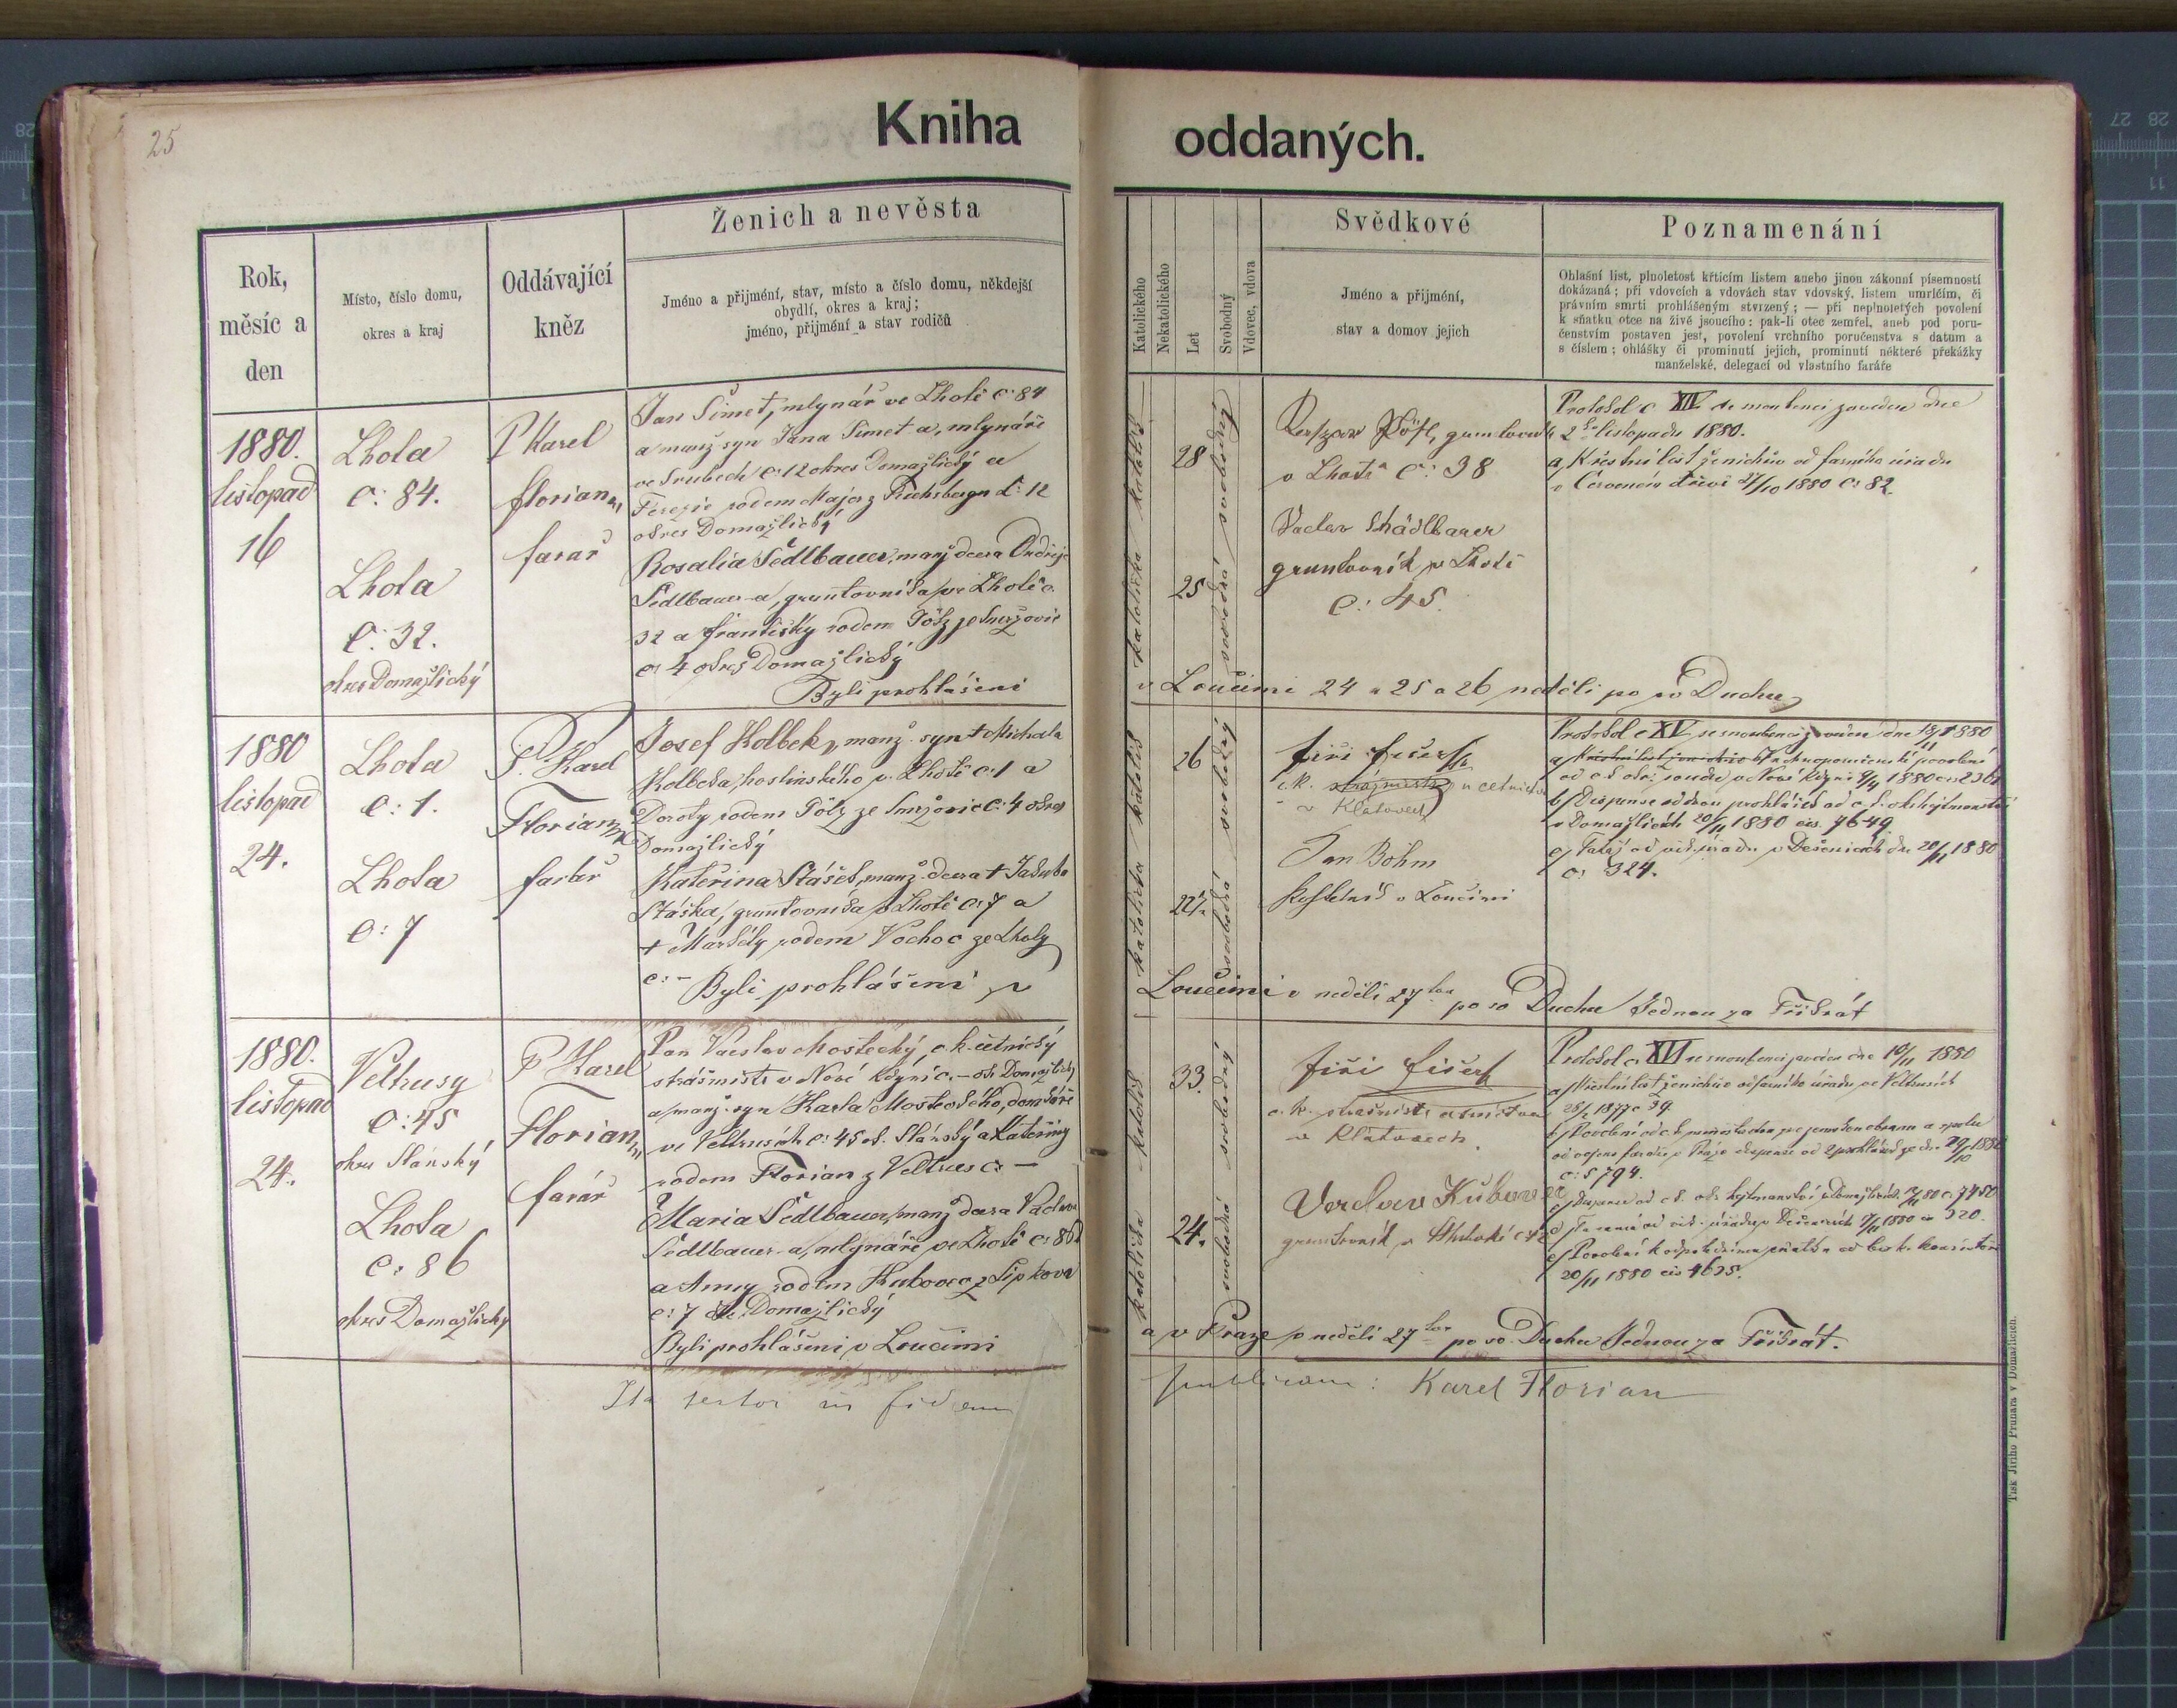 25
Kniha oddaných.
Rok,
měsíc a
den
Místo, číslo domu,
okres a kraj
Oddávající
kněz
Ženich a nevěsta
Jméno a přijmění, stav, místo a číslo domu, někdejší
obydlí, okres a kraj;
jméno, přijmění a stav rodičů
Katolického
Nekatolického
Let
Svobodný
Vdovec, vdova
Svědkové
Jméno a přijmění,
stav a domov jejich
Poznamenání
Ohlašní list, plnoletost křticím listem anebo jinou zákonní písemností
dokázaná; při vdovcích a vdovách stav vdovský, listem umrlčím, či
právním smrti prohlášeným stvrzený; — při neplnoletých povolení
k sňatku otce na živě jsoucího: pak-li otec zemřel, aneb pod poru-
čenstvím postaven jest, povolení vrchního poručenstva s datum a
s číslem; ohlášky či prominutí jejich, prominutí některé překážky
manželské, delegací od vlastního faráře
1880.
listopad
16
Lhota
č: 84.
Lhota
č: 32.
okres Domažlický
P Karel
Florian
farář
Jan Šimet, mlynář ve Lhotě č: 84
a manž syn Jana Šimet a, mlynáře
ve Smrbech č: 12 okres Domažlický a
Terezie rodem Majer z Fuchsbergu č: 12
okres Domažlický
Rosalia Šedlbauer, manž dcera Ondřeje
Šedlbauer-a, gruntovníka ve Lhotě č.
32 a Františky rodem Pölz ze Smržovic
č: 4 okres Domažlický
Byli prohlášeni
katolička katolík
28
25
svobodná svobodný
Pölz, gruntovník
v Lhotě č: 38
Vaclav Shädlbauer
gruntovník v Lhotě
č: 45.
Protokol č XIV se snoubenci zaveden dne
2 listopadu 1880.
a, Křestní list ženichův od farního úřadu
v Červeném Dřevě 27/10 1880 č: 82.
v Loučimi 24 a 25 a 26 neděli po sv Duchu
1880
listopad
24.
Lhota
č: 1.
Lhota
č: 7
P. Karel
Florian
farář
Josef Kolbek, manž. syn + Michala
Kolbeka, hostinského v Lhotě č: 1 a
Doroty rodem Pölz ze Smržovic č: 4 okres
Domažlický
Kateřina Stášek, manž. dcera + Jakuba
Stáška, gruntovníka v Lhotě č: 7 a
+ Markéty rodem Vochoc ze Lhoty
č: –
Byli prohlášeni v
katolička katolík
26
22½
svobodná svobodný
Jiří Fišer
c.k. strážmistr u četnictva
v Klatovech
Jan Böhm
v Loučimi
Protokol č XV se snoubenci zaveden dne 18/11 1880
a/ povolení
od c.k. okr. soudu v Nové Kdyni 1880
b/ Dispense od dvou prohlášek od c.k. okr. hejtmanství
v Domažlicích 20/11 1880 čís. 7649
c/ Taktéž od vik. úřadu v Dešenicích dne 20/11 1880
č: 324.
Loučimi v neděli 27 po sv Duchu Jednou za Třikrát
1880.
listopad
24.
Veltrusy
č: 45
okres Slánský
Lhota
č: 86
okres Domažlický
P Karel
Florian
farář
Pan Václav Mostecký, c.k. četnický
strážmistr v Nové Kdyni č. – okr Domažlický
a manž. syn Karla Mosteckého, domkáře
ve Veltrusích č: 45 ok. Slánský a Kateřiny
rodem Florian z Veltrus č: –
Maria Šedlbauer, manž dcera Václava
Šedlbauer-a, mlynáře ve Lhotě č: 86
a Anny rodem Kubovec z Lipkova
č: 7 okr Domažlický
Byli prohlášeni v Loučimi
katolička katolík
33.
24.
svobodná svobodný
Jiří Fišer
c. k. strážmistr četnictva
v Klatovech
Vaclav Kubovec
gruntovník v
Protokol č XVI se snoubenci zaveden dne 10/11 1880
a/ Křestní list ženichův od farního úřadu ve Veltrusích
1877 č 39
b/ Povolení od c.k. ministerstva pro zemskou obranu a spolu
v Praze dispense od 2 prohlášek ze dne 29/10 1880
č: 5794.
c/ Dispense od c.k. okr. hejtmanství v Domažlicích 80 č: 7450
d/ od vik. úřadu v Dešenicích 1880 čís 320.
e/ Povolení k
20/11 1880 čís 4625.
a v Praze v neděli 27 po sv. Duchu Jednou za Třikrát.
Ita testor in fidem
publicam: Karel Florian
Tisk Jiřího Prunara v Domažlicích.